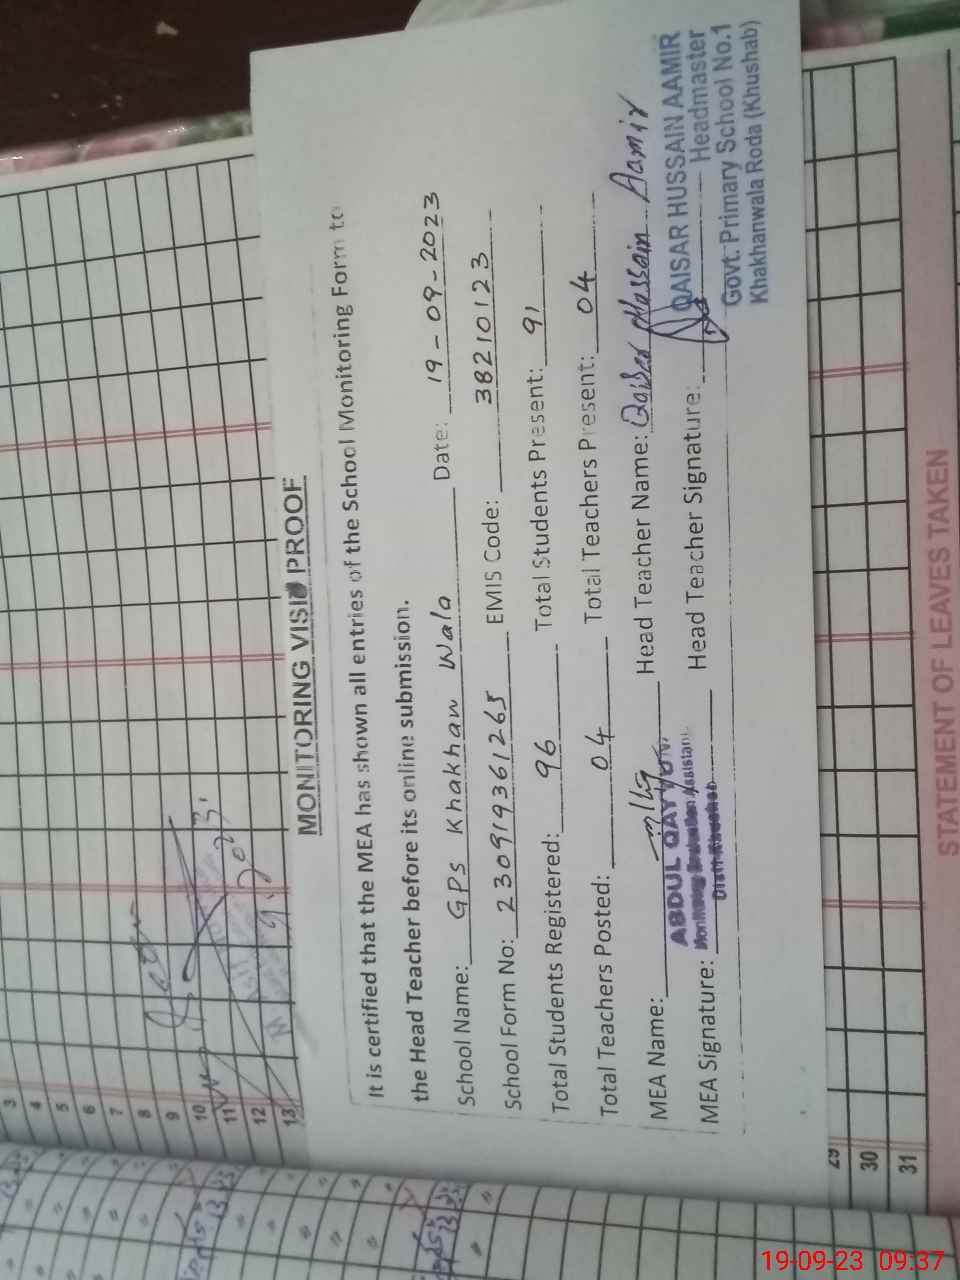 MONITORING VISIT PROOF
It is certified that the MEA has shown all entries of the School Monitoring Form to
the Head Teacher before its online submission.
School Name: GPS Khakhan Wala Date: 19-09-2023
School Form No: 230919361265 EMIS Code: 38210123
Total Students Registered: 96 Total Students Present: 91
Total Teachers Posted: 04 Total Teachers Present: 04
MEA Name: Head Teacher Name: Qaiser Hussain Aamir
ABDUL QAYYUM
Monitoring Evaluation Assistant
Distt Khushab
MEA Signature: Head Teacher Signature:
QAISAR HUSSAIN AAMIR
Headmaster
Govt. Primary School No.1
Khakhanwala Roda (Khushab)
3
4
5
6
7
8
9
10
11
12
13
29
30
31
STATEMENT OF LEAVES TAKEN
19-09-23 09:37